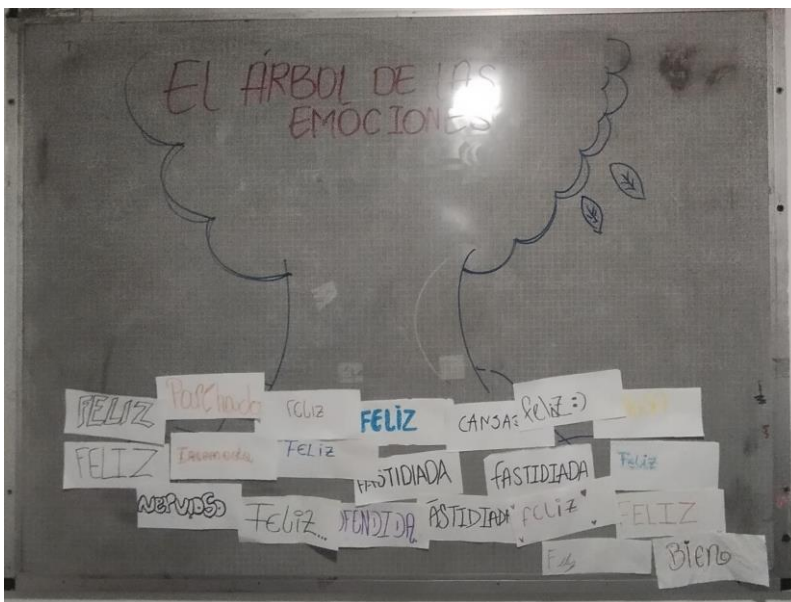 EL ÁRBOL DE LAS
EMOCIONES
FELIZ
FELIZ
FELIZ
CANSA
feliz :)
FELIZ
FELIZ
FASTIDIADA
FASTIDIADA
FELIZ
NERVIOSO
FELIZ...
OFENDIDA
ÁSTIDIADA
FELIZ
FELIZ
Bieno